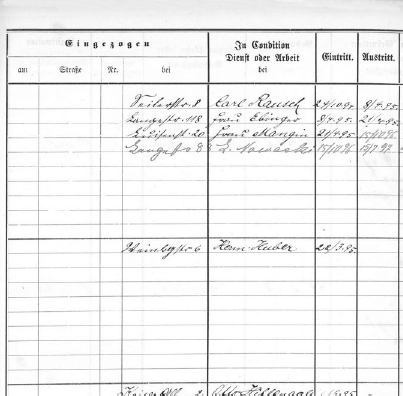 Eingezogen
In Condition
Dienst oder Arbeit
bei
Eintritt.
Austritt.
am
Straße
Nr.
bei
Seilerstr. 8 Carl Rausch 24/10 94. 8/4. 95.
Langestr. 118 Frau Ebinger 8/4. 95. 21/4. 95.
Luisenst. 20 Frau Mangin 21/4. 95. 15/10 96
Langest 8 L. Nowaski 15/10 96
Weinbgstr 6 Herm. Huber 22/3. 95.
Otto